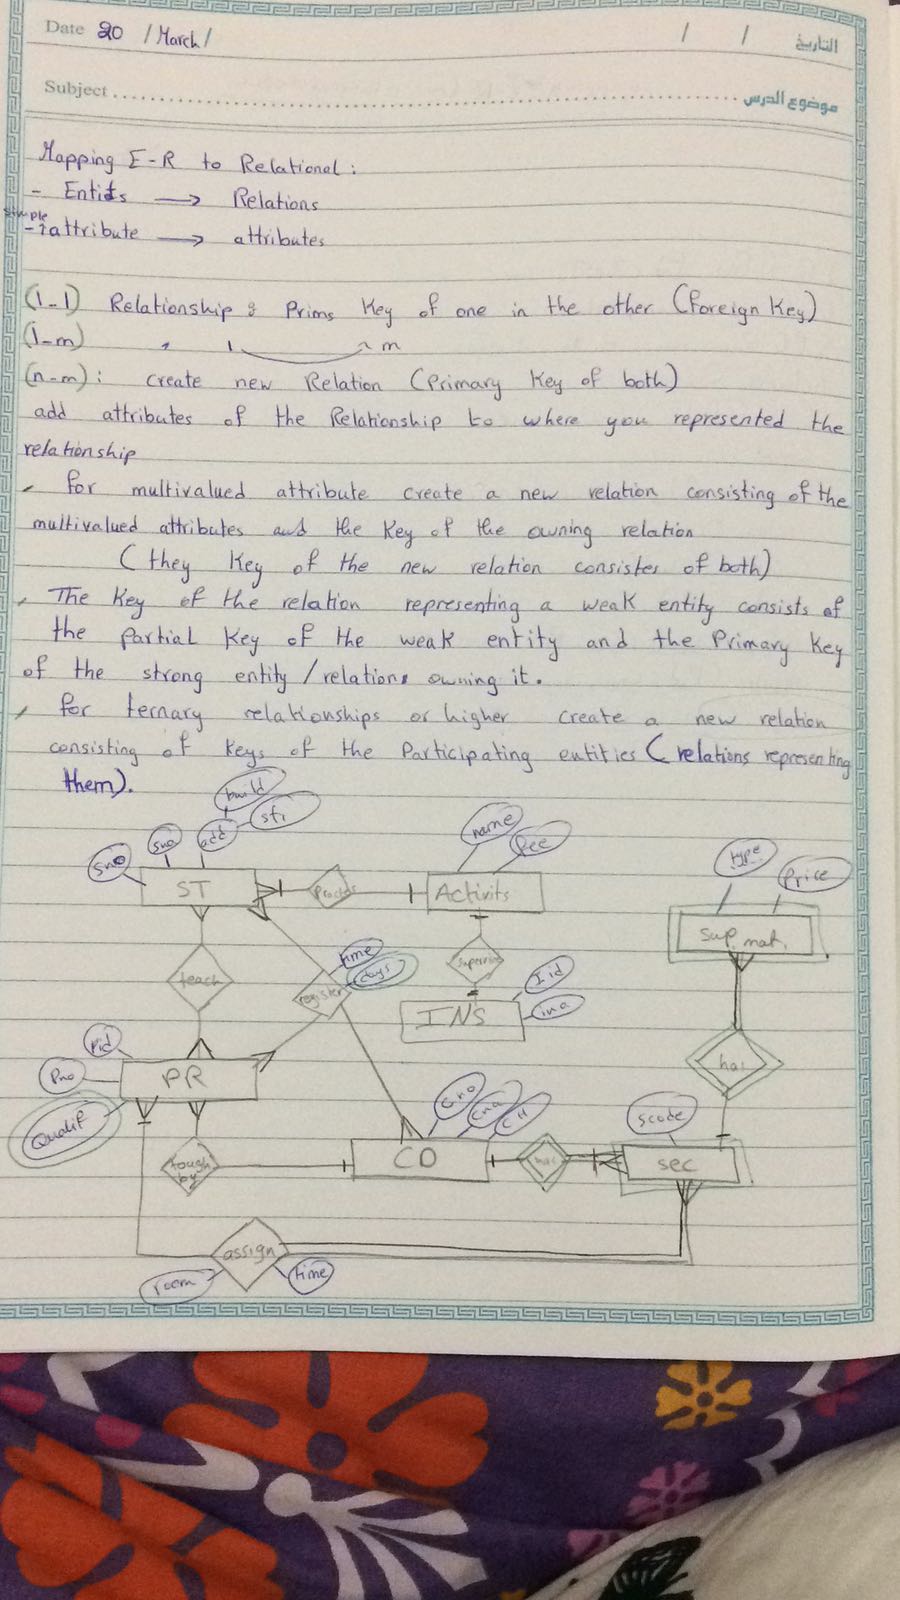 Date 20 / March /
/ / التاريخ
Subject
موضوع الدرس
Mapping E-R to Relational :
- Entits → Relations
simple
- attribute → attributes
(1-1) Relationship : Prims Key of one in the other (foreign Key)
(1-m) " 1 m
(n-m) : create new Relation (Primary Key of both)
add attributes of the Relationship to where you represented the
relationship
for multivalued attribute create a new relation consisting of the
multivalued attributes and the key of the owning relation
( they Key of the new relation consistes of both)
The Key of the relation representing a weak entity consists of
the partial Key of the weak entity and the Primary Key
of the strong entity / relation owning it.
for ternary relationships or higher create a new relation
consisting of Keys of the Participating entities ( relations representing
them).
build
add
str
sno
name
fee
type
Price
ST
Activits
Sup. mat.
teach
register
time
days
supervise
INS
Iid
ina
has
Pid
Pno
PR
Qualif
taugh by
CO
Cno
Cna
CH
scode
sec
assign
room
time